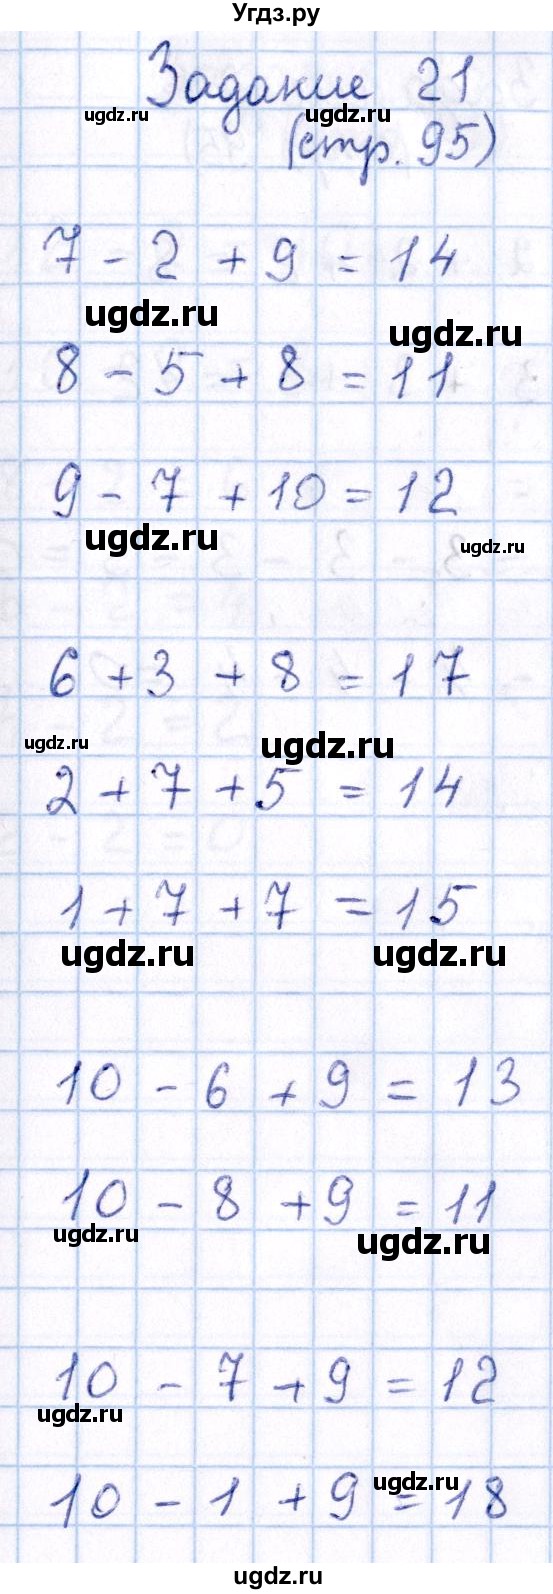 Угдз.ру
Задание 21
ugdz.ru ugdz.ru
(стр. 95)
7 - 2 + 9 = 14
ugdz.ru ugdz.ru
8 - 5 + 8 = 11
9 - 7 + 10 = 12
ugdz.ru ugdz.ru
6 + 3 + 8 = 17
ugdz.ru ugdz.ru
2 + 7 + 5 = 14
1 + 7 + 7 = 15
ugdz.ru ugdz.ru
10 - 6 + 9 = 13
10 - 8 + 9 = 11
ugdz.ru ugdz.ru
10 - 7 + 9 = 12
ugdz.ru
ugdz.ru
10 - 1 + 9 = 18
ugdz.ru